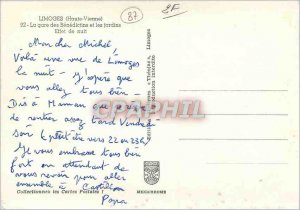 LIMOGES (Haute-Vienne)
92 - La gare des Bénédictins et les jardins
Effet de nuit
87
2F
Mon cher Michel,
Voilà une vue de Limoges
la nuit - J'espère que
vous allez tous bien -
Dis à Maman que je pense
de rentrer assez tard Vendredi
soir (peut être vers 22 ou 23h)
Je vous embrasse tous bien
fort en attendant de
vous revoir pour aller
ensemble à Castillon
Papa
Collectionnez les Cartes Postales !
MEXICHROME
Limoges
CPAPHIL